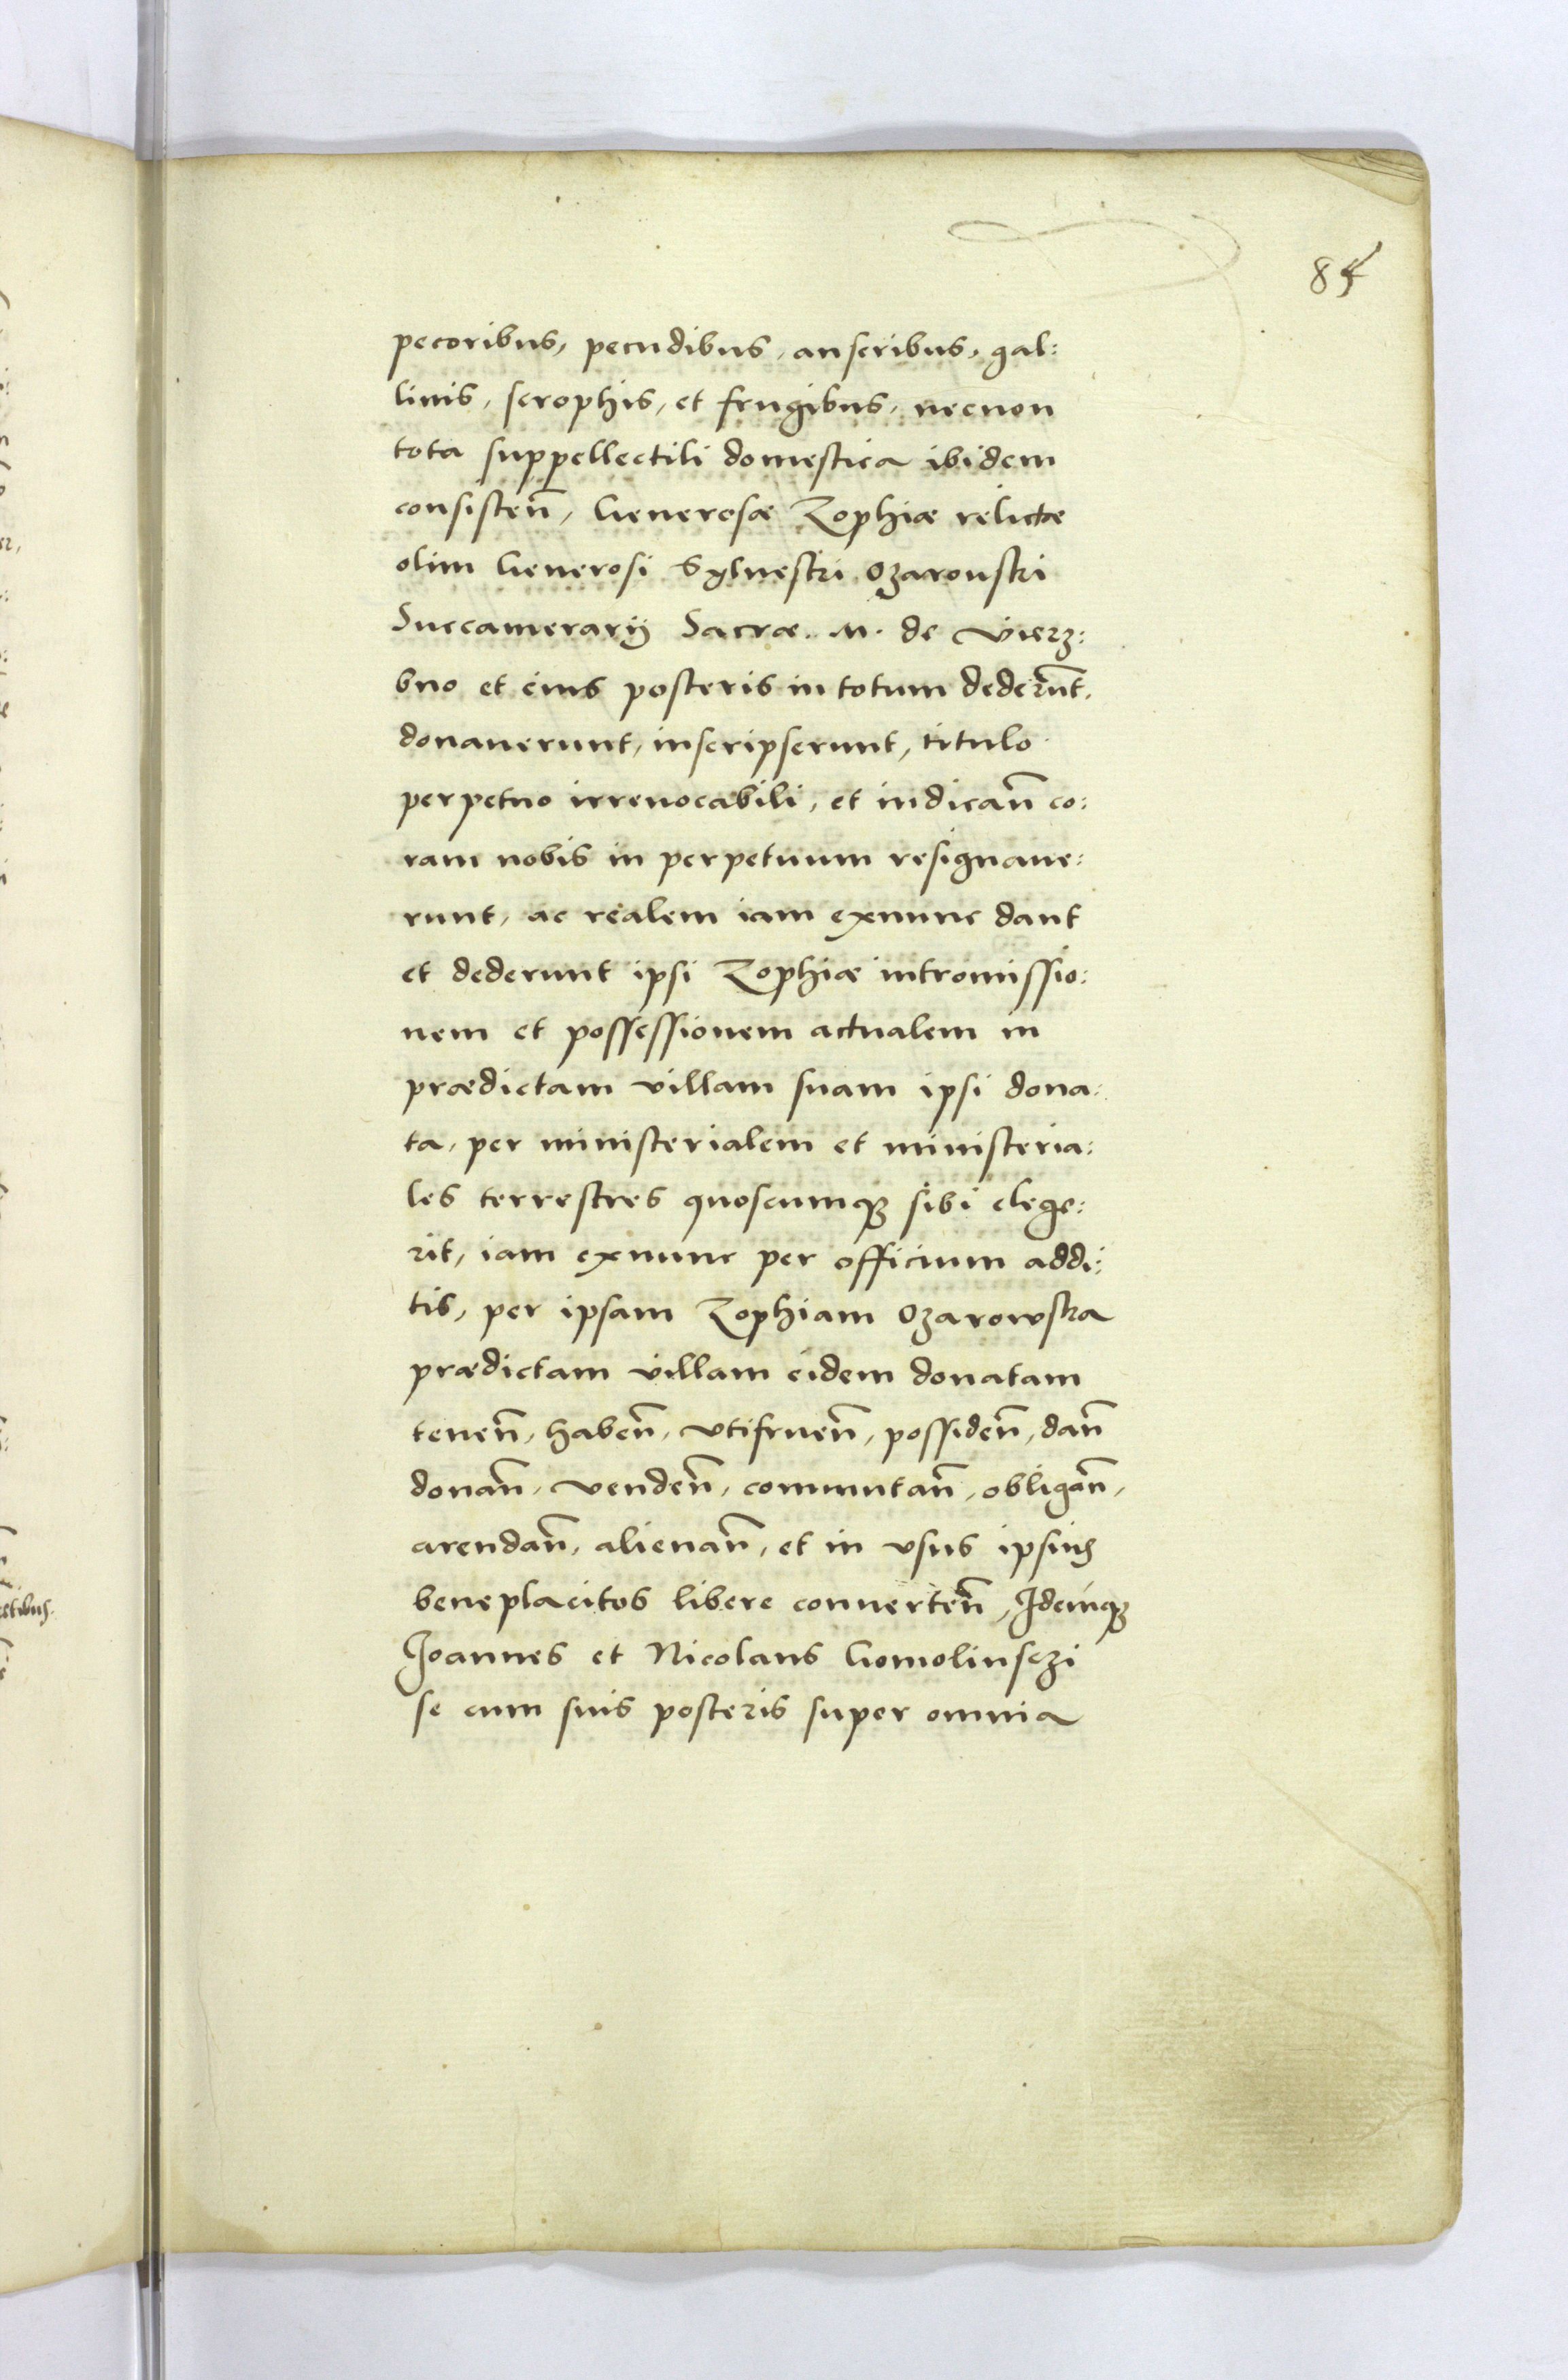 84
pecoribus, pecudibus, anseribus, gal:
linis, scrophis, et frugibus, necnon
tota suppellectili domestica ibidem
consisteñ, Generosæ Zophiæ relictæ
olim Generosi Sylvestri Ozarouski
Succamerarij Sacræ. M. de Vierz:
bno et eius posteris in totum dederunt,
donauerunt, inscripserunt, titulo
perpetuo irreuocabili, et in dicañ co:
ram nobis in perpetuum resignaue:
runt, ac realem iam exnunc dant
et dederunt ipsi Zophiæ intromissio:
nem et possessionem actualem in
prædictam villam suam ipsi dona:
ta, per ministerialem et ministeria:
les terrestres quoscumqꝫ sibi elege:
rit, iam exnunc per officium addi:
tis, per ipsam Zophiam Ozarowska
prædictam villam eidem donatam
teneñ, habeñ, vtifrueñ, possideñ, dañ
donañ, vendeñ, commutañ, obligañ,
arendañ, alienañ, et in vsus ipsius
beneplacitos libere conuerteñ, Idemqꝫ
Joannes et Nicolaus Gomolinsczi
se cum suis posteris super omnia